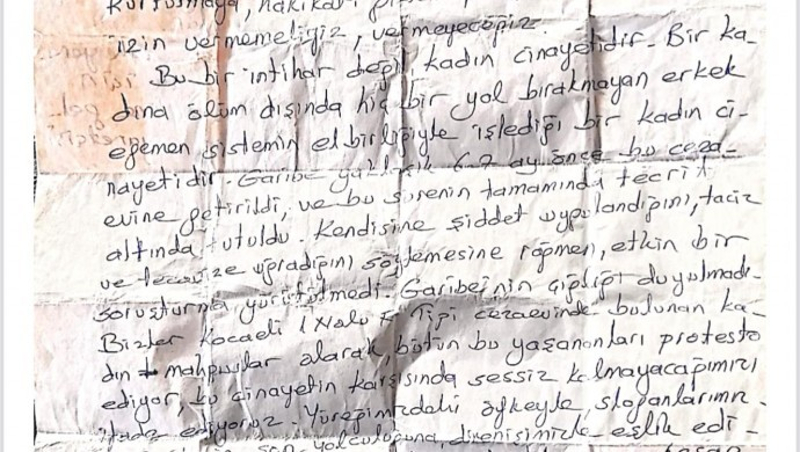 izin vermemeliyiz, vermeyeceğiz.
Bu bir intihar değil, kadın cinayetidir. Bir ka-
dına ölüm dışında hiç bir yol bırakmayan erkek
egemen sistemin el birliğiyle işlediği bir kadın ci-
nayetidir. Garibe yaklaşık 6-7 ay önce bu ceza-
evine getirildi, ve bu sürenin tamamında tecrit
altında tutuldu. Kendisine şiddet uygulandığını, taciz
ve tecavüze uğradığını söylemesine rağmen, etkin bir
soruşturma yürütülmedi. Garibe'nin çığlığı duyulmadı.
Bizler Kocaeli 1 Nolu F Tipi cezaevinde bulunan ka-
dın mahpuslar olarak, bütün bu yaşananları protesto
ediyor, bu cinayetin karşısında sessiz kalmayacağımızı
ifade ediyoruz. Yüreğimizdeki öfkeyle, sloganlarımız-
yolculuğuna, direnişimizle eşlik edi-